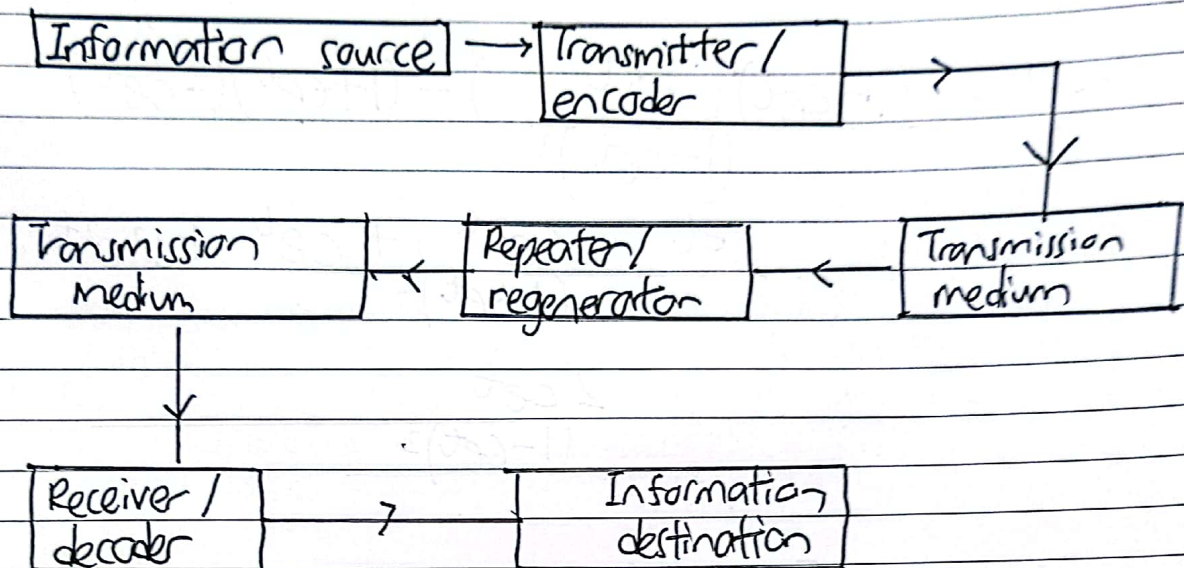 Information source
Transmitter/
encoder
Transmission
medium
Repeater/
regenerator
Transmission
medium
Receiver/
decoder
Information
destination